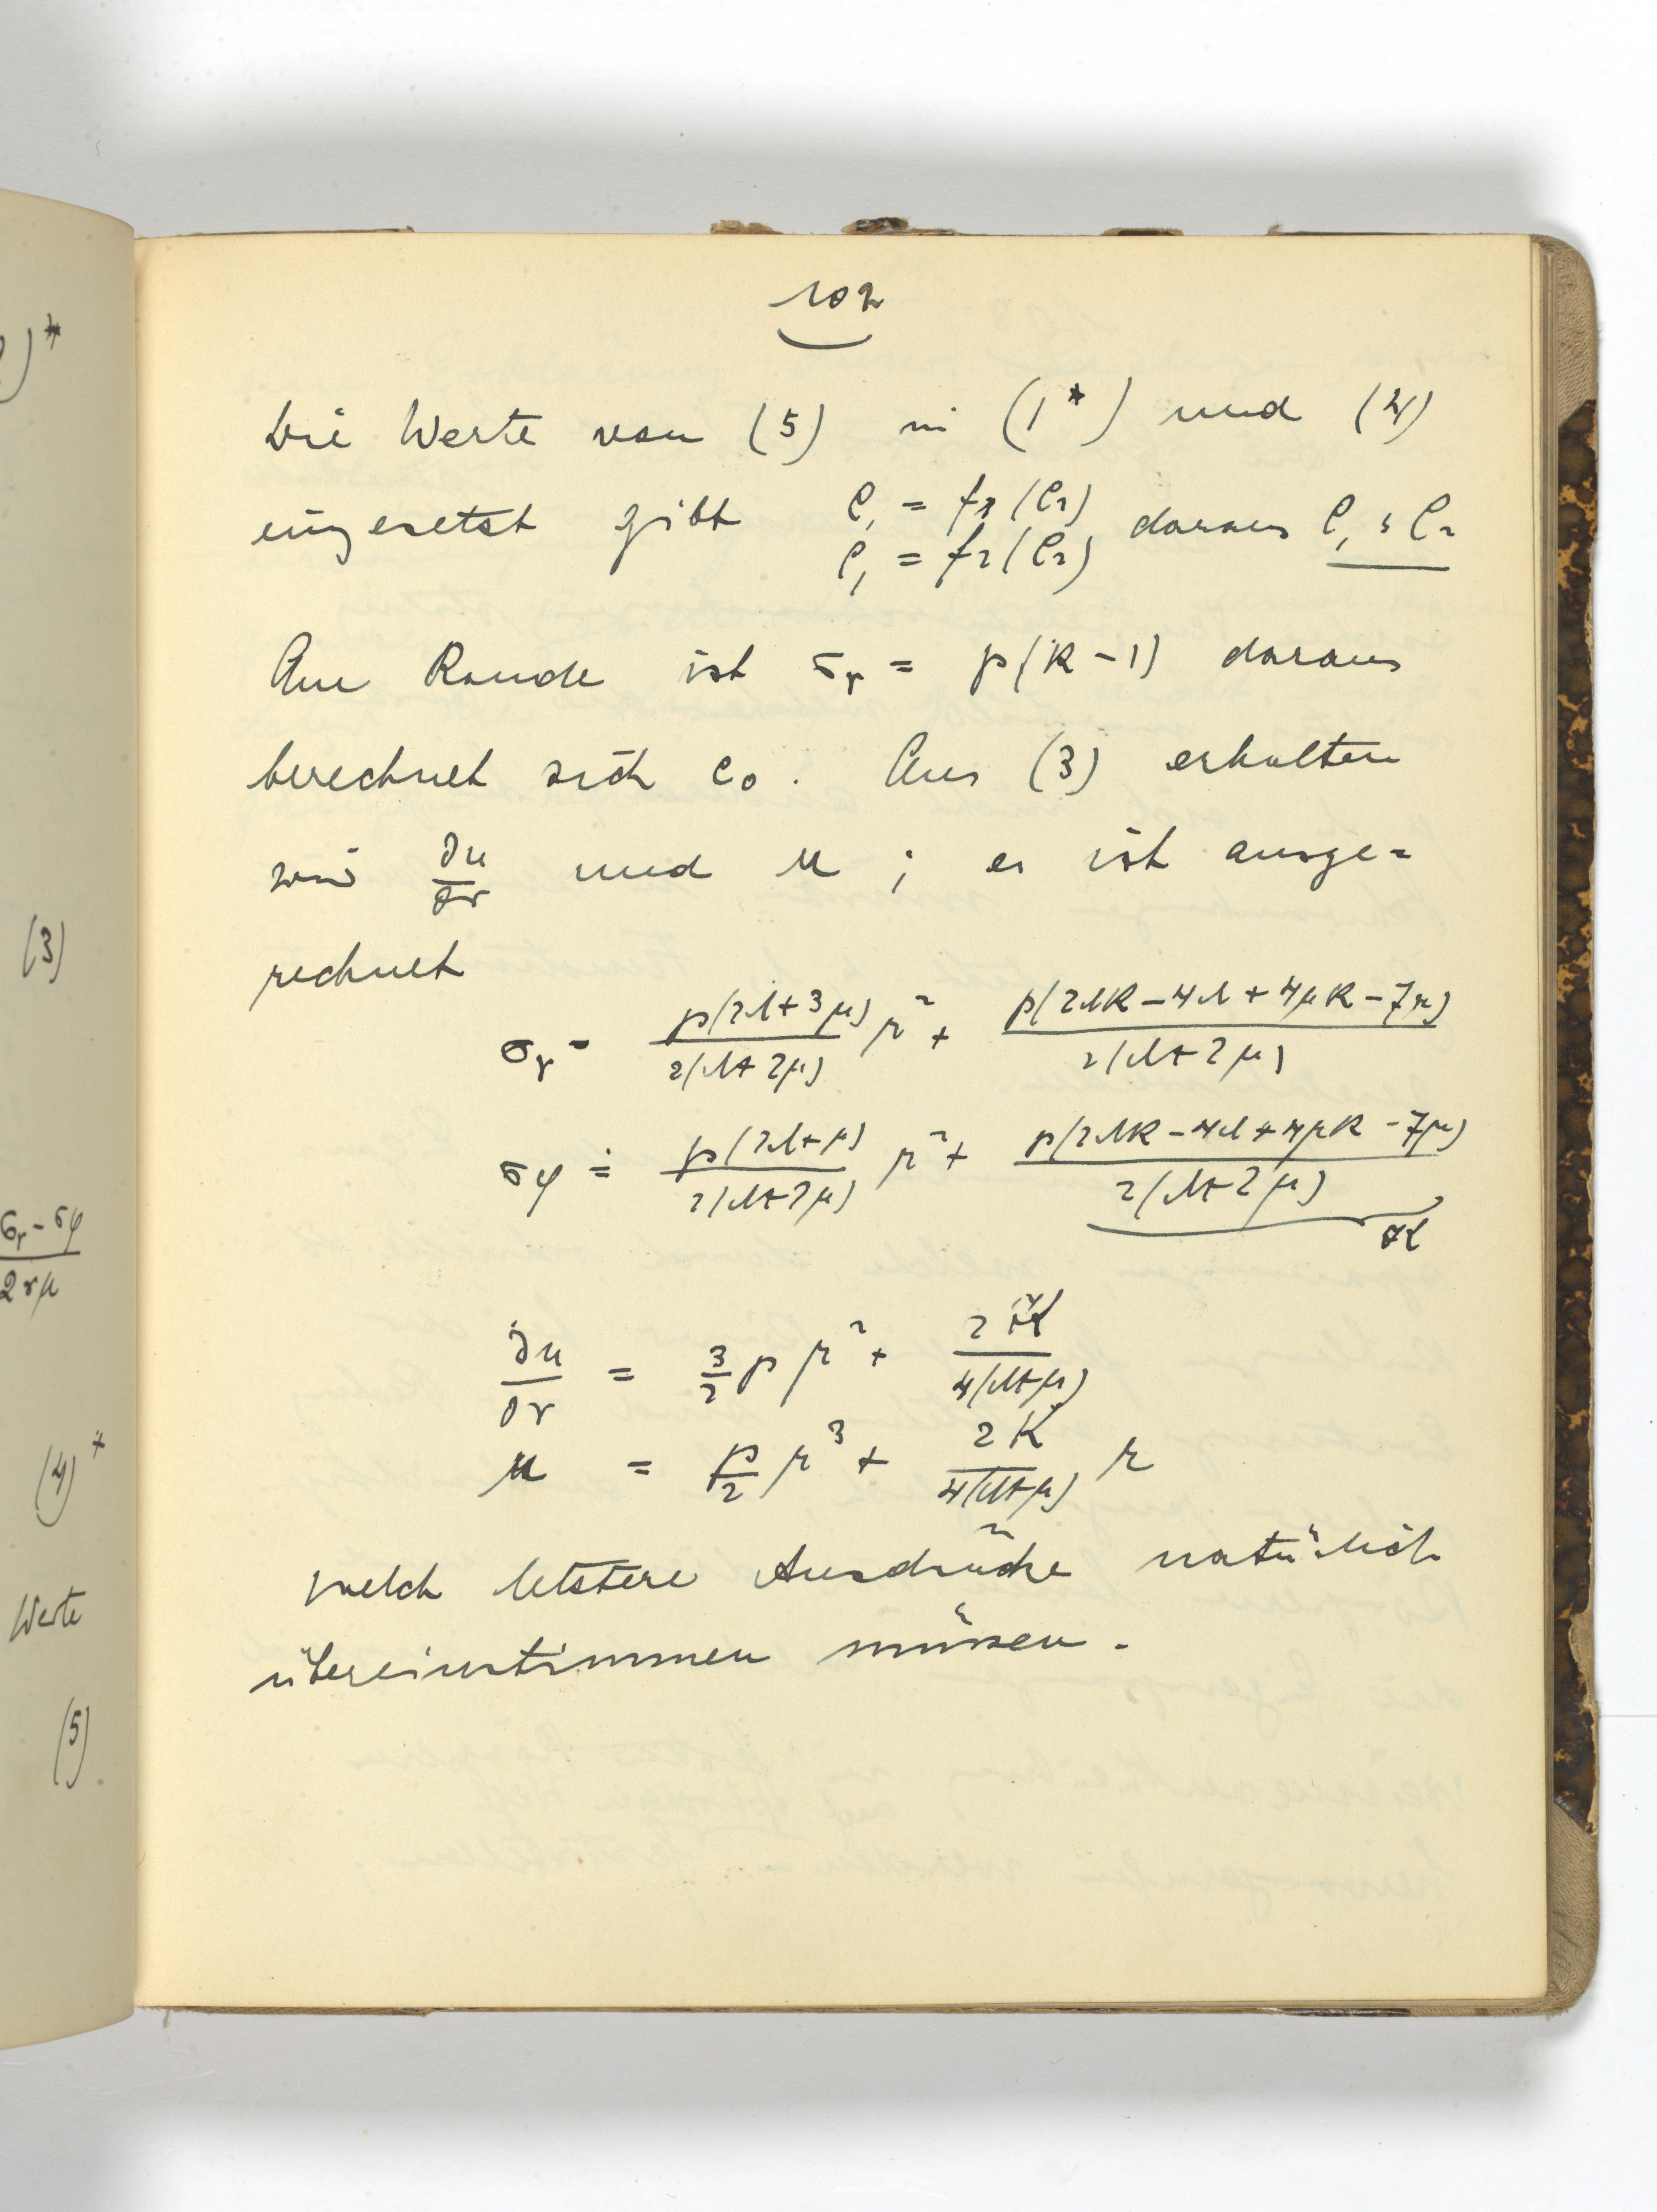 )*
(3)
σr - σφ
2rμ
(4)*
Werte
(5)
102
Die Werte von (5) in (1*) und (4)
eingesetzt gibt C₁ = f₁(C₂) daraus C₁, C₂
C₁ = f₂(C₂)
Am Rande ist σr = p(k-1) daraus
berechnet sich c₀. Aus (3) erhalten
wir ∂u/∂r und u ; es ist ausge=
rechnet
σr = p(2λ+3μ)/2(λ+2μ) r² + p(2λk-4λ+4μk-7μ)/2(λ+2μ)
σφ = p(2λ+μ)/2(λ+2μ) r² + p(2λk-4λ+4μk-7μ)/2(λ+2μ)
∂u/∂r = 3/2 p r² + 2K/4(λ+μ)
u = p/2 r³ + 2K/4(λ+μ) r
welch letztere Ausdrücke natürlich
übereinstimmen müssen.